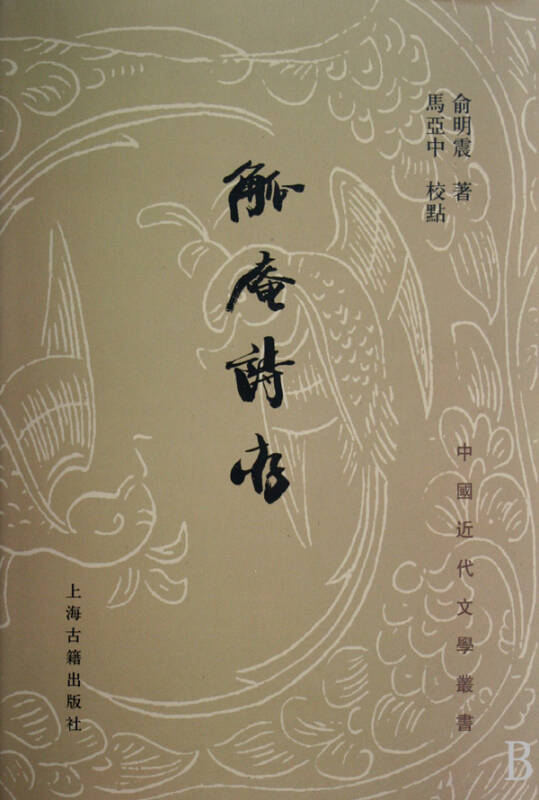 俞明震 著
馬亞中 校點
觚庵詩存
中國近代文學叢書
上海古籍出版社
B